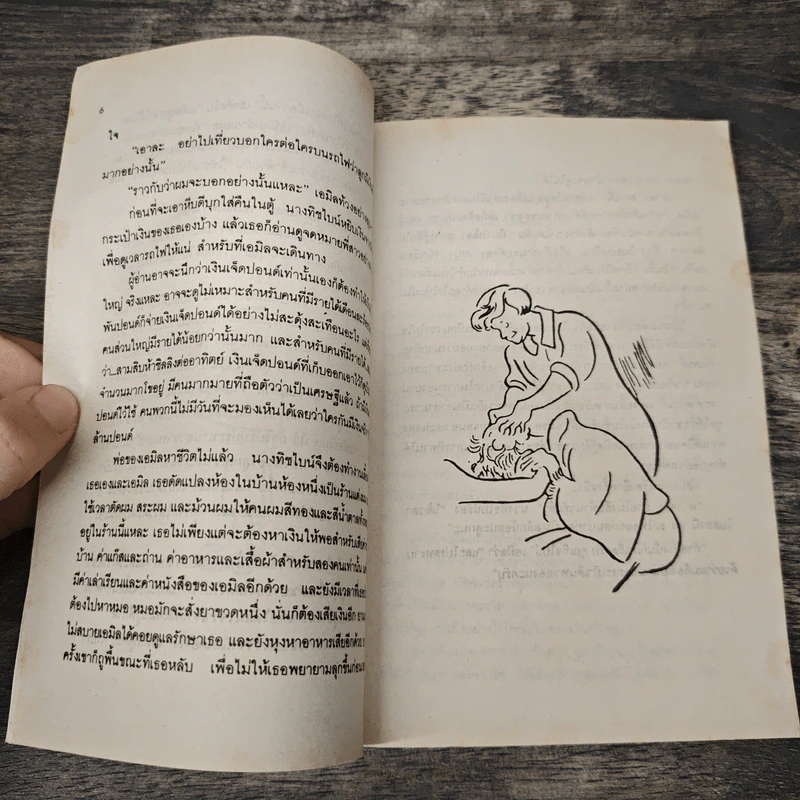 6
ใจ
"เอาละ อย่าไปเที่ยวบอกใครต่อใครบนรถไฟว่าลูกมี
มากอย่างนั้น"
"ราวกับว่าผมจะบอกอย่างนั้นแหละ" เอมิลท้วงอย่าง
ก่อนที่จะเอาหีบดีบุกใส่คืนในตู้ นางทิชไบน์หยิบเงิน
กระเป๋าเงินของเธอเองบ้าง แล้วเธอก็อ่านดูจดหมายพี่สาว
เพื่อดูเวลารถไฟให้แน่ สำหรับที่เอมิลจะเดินทาง
ผู้อ่านอาจจะนึกว่าเงินเจ็ดปอนด์เท่านั้นเองก็ต้องทำให้
ใหญ่ จริงแหละ อาจจะดูไม่เหมาะสำหรับคนที่มีรายได้เดือนละ
พันปอนด์ก็จ่ายเงินเจ็ดปอนด์ได้อย่างไม่สะดุ้งสะเทือนอะไร
คนส่วนใหญ่มีรายได้น้อยกว่านั้นมาก และสำหรับคนที่มีรายได้
ว่า...สามสิบห้าชิลลิงต่ออาทิตย์ เงินเจ็ดปอนด์ที่เก็บออกเอาไว้
จำนวนมากโขอยู่ มีคนมากมายที่ถือตัวว่าเป็นเศรษฐีแล้ว ถ้ามี
ปอนด์ไว้ใช้ คนพวกนี้ไม่มีวันที่จะมองเห็นได้เลยว่าใครกันมีเงิน
ล้านปอนด์
พ่อของเอมิลหาชีวิตไม่แล้ว นางทิชไบน์จึงต้องทำงาน
เธอเองและเอมิล เธอดัดแปลงห้องในบ้านห้องหนึ่งเป็นร้าน
ใช้เวลาตัดผม สระผม และม้วนผมให้คนผมสีทองและสีน้ำตาล
อยู่ในร้านนี้แหละ เธอไม่เพียงแต่จะต้องหาเงินให้พอสำหรับ
บ้าน ค่าแก๊สและถ่าน ค่าอาหารและเสื้อผ้าสำหรับสองคนเท่านั้น
มีค่าเล่าเรียนและค่าหนังสือของเอมิลอีกด้วย และยังมีเวลาที่
ต้องไปหาหมอ หมอมักจะสั่งยาขวดหนึ่ง นั่นก็ต้องเสียเงินอีก
ไม่สบายเอมิลได้คอยดูแลรักษาเธอ และยังหุงหาอาหารเสียอีกด้วย
ครั้งเขาก็ถูพื้นขณะที่เธอหลับ เพื่อไม่ให้เธอพยายามลุกขึ้นก่อน